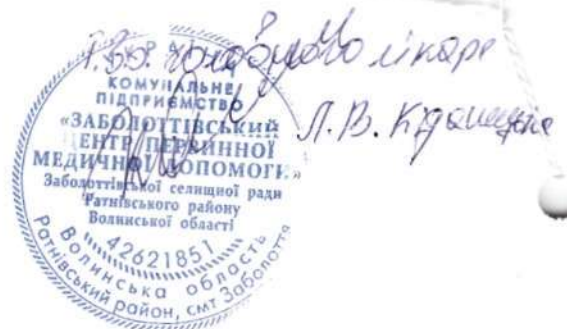 Т.в.о. головного лікаря
Л.В.
УКРАЇНА
КОМУНАЛЬНЕ
ПІДПРИЄМСТВО
«ЗАБОЛОТТІВСЬКИЙ
ЦЕНТР ПЕРВИННОЇ
МЕДИЧНОЇ ДОПОМОГИ»
Заболоттівської селищної ради
Ратнівського району
Волинської області
42621851
Волинська область
Ратнівський район, смт Заболоття